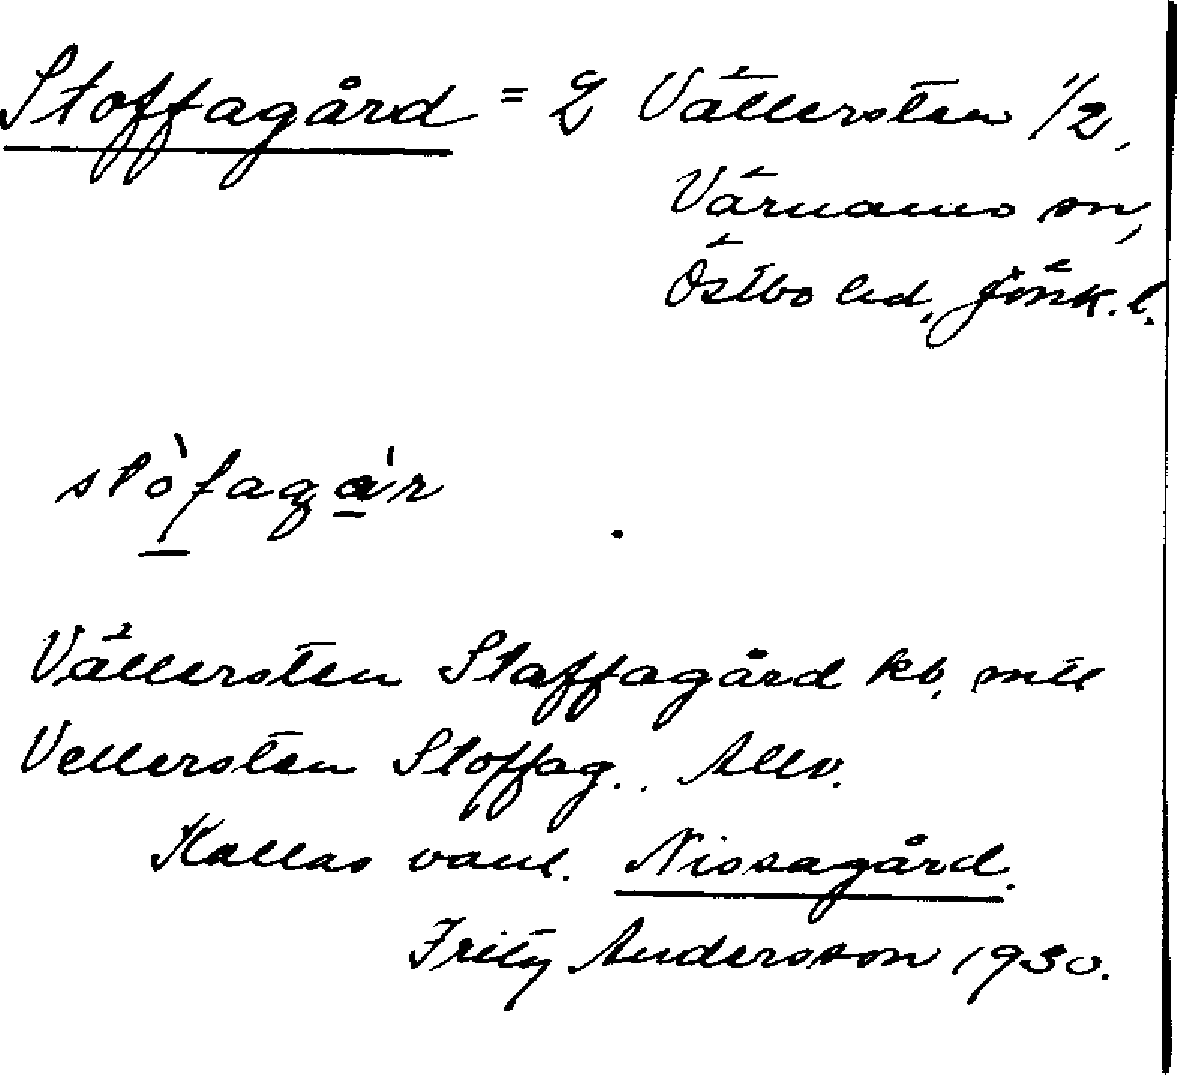 Stoffagård = Vällersten 1/2,
Värnamo sn,
Östbo hd, Jönk. l.
stòfagár
Vällersten Staffagård kb, mtl
Vellersten Stoffag. . Allv.
Kallas vanl. Nissagård.
Fritz Andersson 1930.